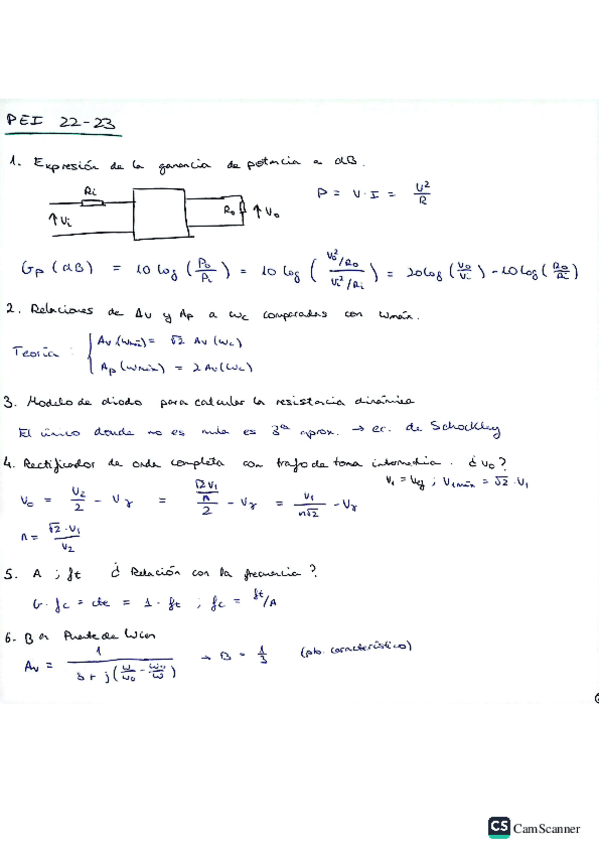 PEI 22-23
1. Expresión de la ganancia de potencia a dB.
Ri
P = V·I = V²/R
↑Vi
Ro ↑Vo
Gp (dB) = 10 log (Po/Pi) = 10 log ( (Vo²/Ro) / (Vi²/Ri) ) = 20 log (Vo/Vi) - 10 log (Ro/Ri)
2. Relaciones de Av y Ap a ωc comparadas con ωmáx.
Teoría : { Av (ωmáx) = √2 Av (ωc)
Ap (ωmáx) = 2 Av (ωc)
3. Modelo de diodo para calcular la resistencia dinámica
El único donde no es nula es 3ª aprox. → ec. de Schockley
4. Rectificador de onda completa con trafo de toma intermedia. ¿Vo?
V1 = Vef ; V1máx = √2 · V1
Vo = V2/2 - Vγ = (√2 V1/n)/2 - Vγ = V1/(n√2) - Vγ
n = √2 · V1 / V2
5. A ; ft ¿Relación con la frecuencia?
G · fc = cte = 1 · ft ; fc = ft/A
6. B en Puente de Wien
Av = 1 / (3 + j(ω/ωo - ωo/ω)) → B = 1/3 (pto. característico)
CS CamScanner